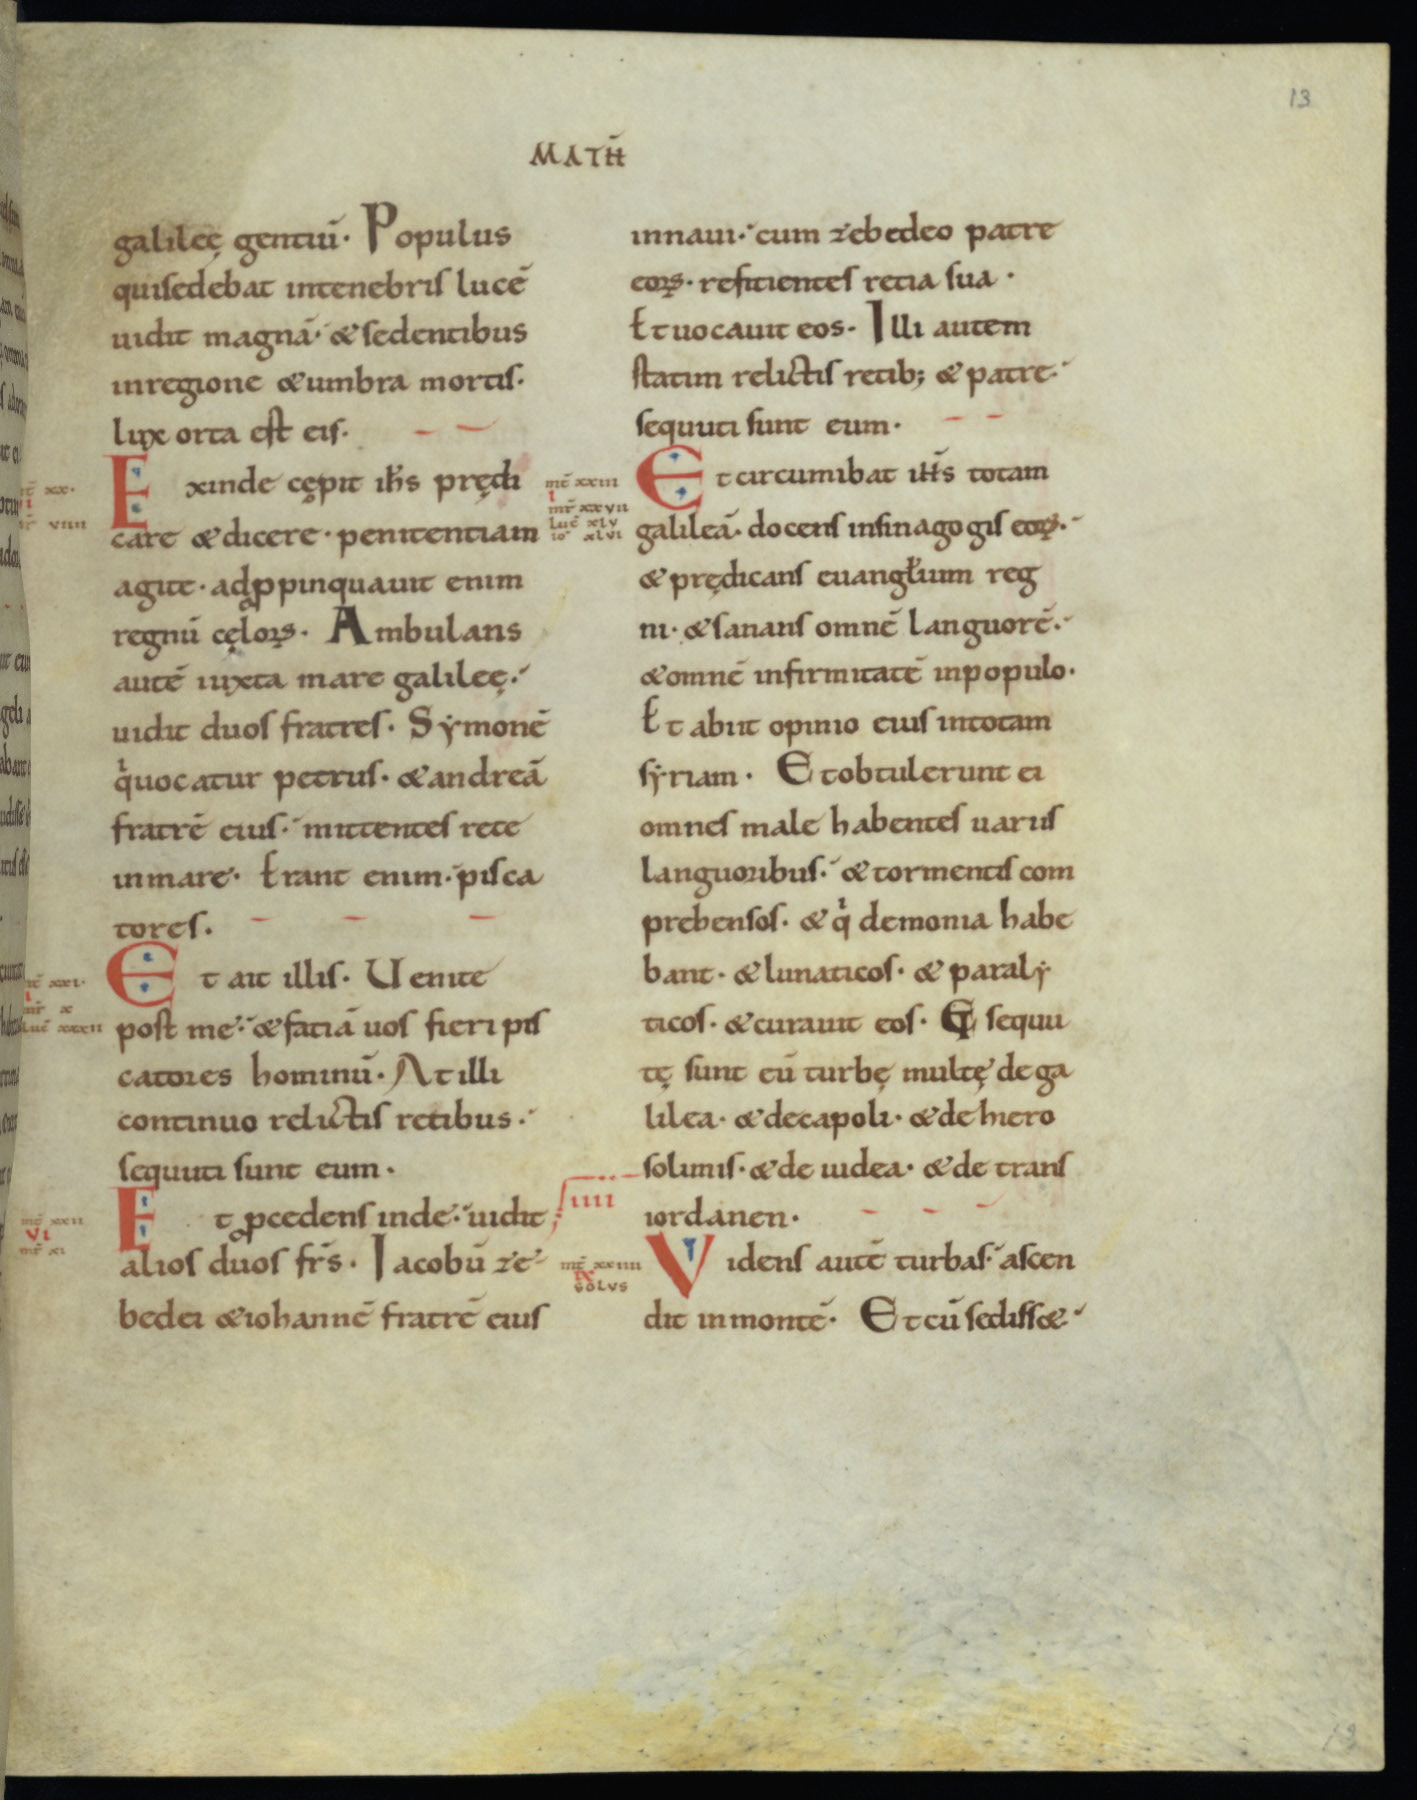 13
MATH̄
galileę gentiū· Populus
quisedebat intenebris lucē
uidit magnā·́ &sedentibus
inregione &umbra mortis·
lux orta est eis·
Exinde cępit ihs̄ prędi
care &dicere· penitentiam
agite· adꝓpinquauit enim
regnū cęloꝝ· Ambulans
autē iuxta mare galileę·́
uidit duos fratres· Sẏmonē
qͥuocatur petrus· &andreā
fratrē eius·́ mittentes rete
inmare· Erant enim·́ pisca
tores·
mt̄ xx·
i
mr̄ viiii
Et ait illis· Uenite
post me·́ &fatiā uos fieri pis
catores hominū· At illi
continuo relictis retibus·́
sequuti sunt eum·
mt̄ xxi·
i
mr̄ x
luc̄ xxxii
Et ꝓcedens inde·́ uidit
alios duos fr̄s· Iacobū ze
bedei &iohannē fratrē eius
mt̄ xxii
vi
mr̄ xi
innaui·́ cum zebedeo patre
eoꝝ· reficientes retia sua·
Et uocauit eos· Illi autem
statim relictis retib; & patre·́
sequuti sunt eum·
Et circumibat ihs̄ totam
galileā· docens insinagogis eoꝝ·́
& prędicans euangłium reg
ni· &sanans omnē languorē·́
&omnē infirmitatē inpopulo·
Et abiit opinio eius intotam
sẏriam· Etobtulerunt ei
omnes male habentes uariis
languoribus·́ &tormentis com
prehensos· & qͥ demonia habe
bant· &lunaticos· & paralẏ
ticos· &curauit eos· Et sequu
tę sunt eū turbę multę de ga
lilea· &decapoli· &de hiero
solimis· &de iudea· &de trans
iordanen·
mt̄ xxiii
i
mr̄ xxvii
luc̄ xlv
io xlvi
iiii
Videns autē turbas·́ ascen
dit inmontē· Etcū sediss&·́
mt̄ xxiiii
ix
solus
13